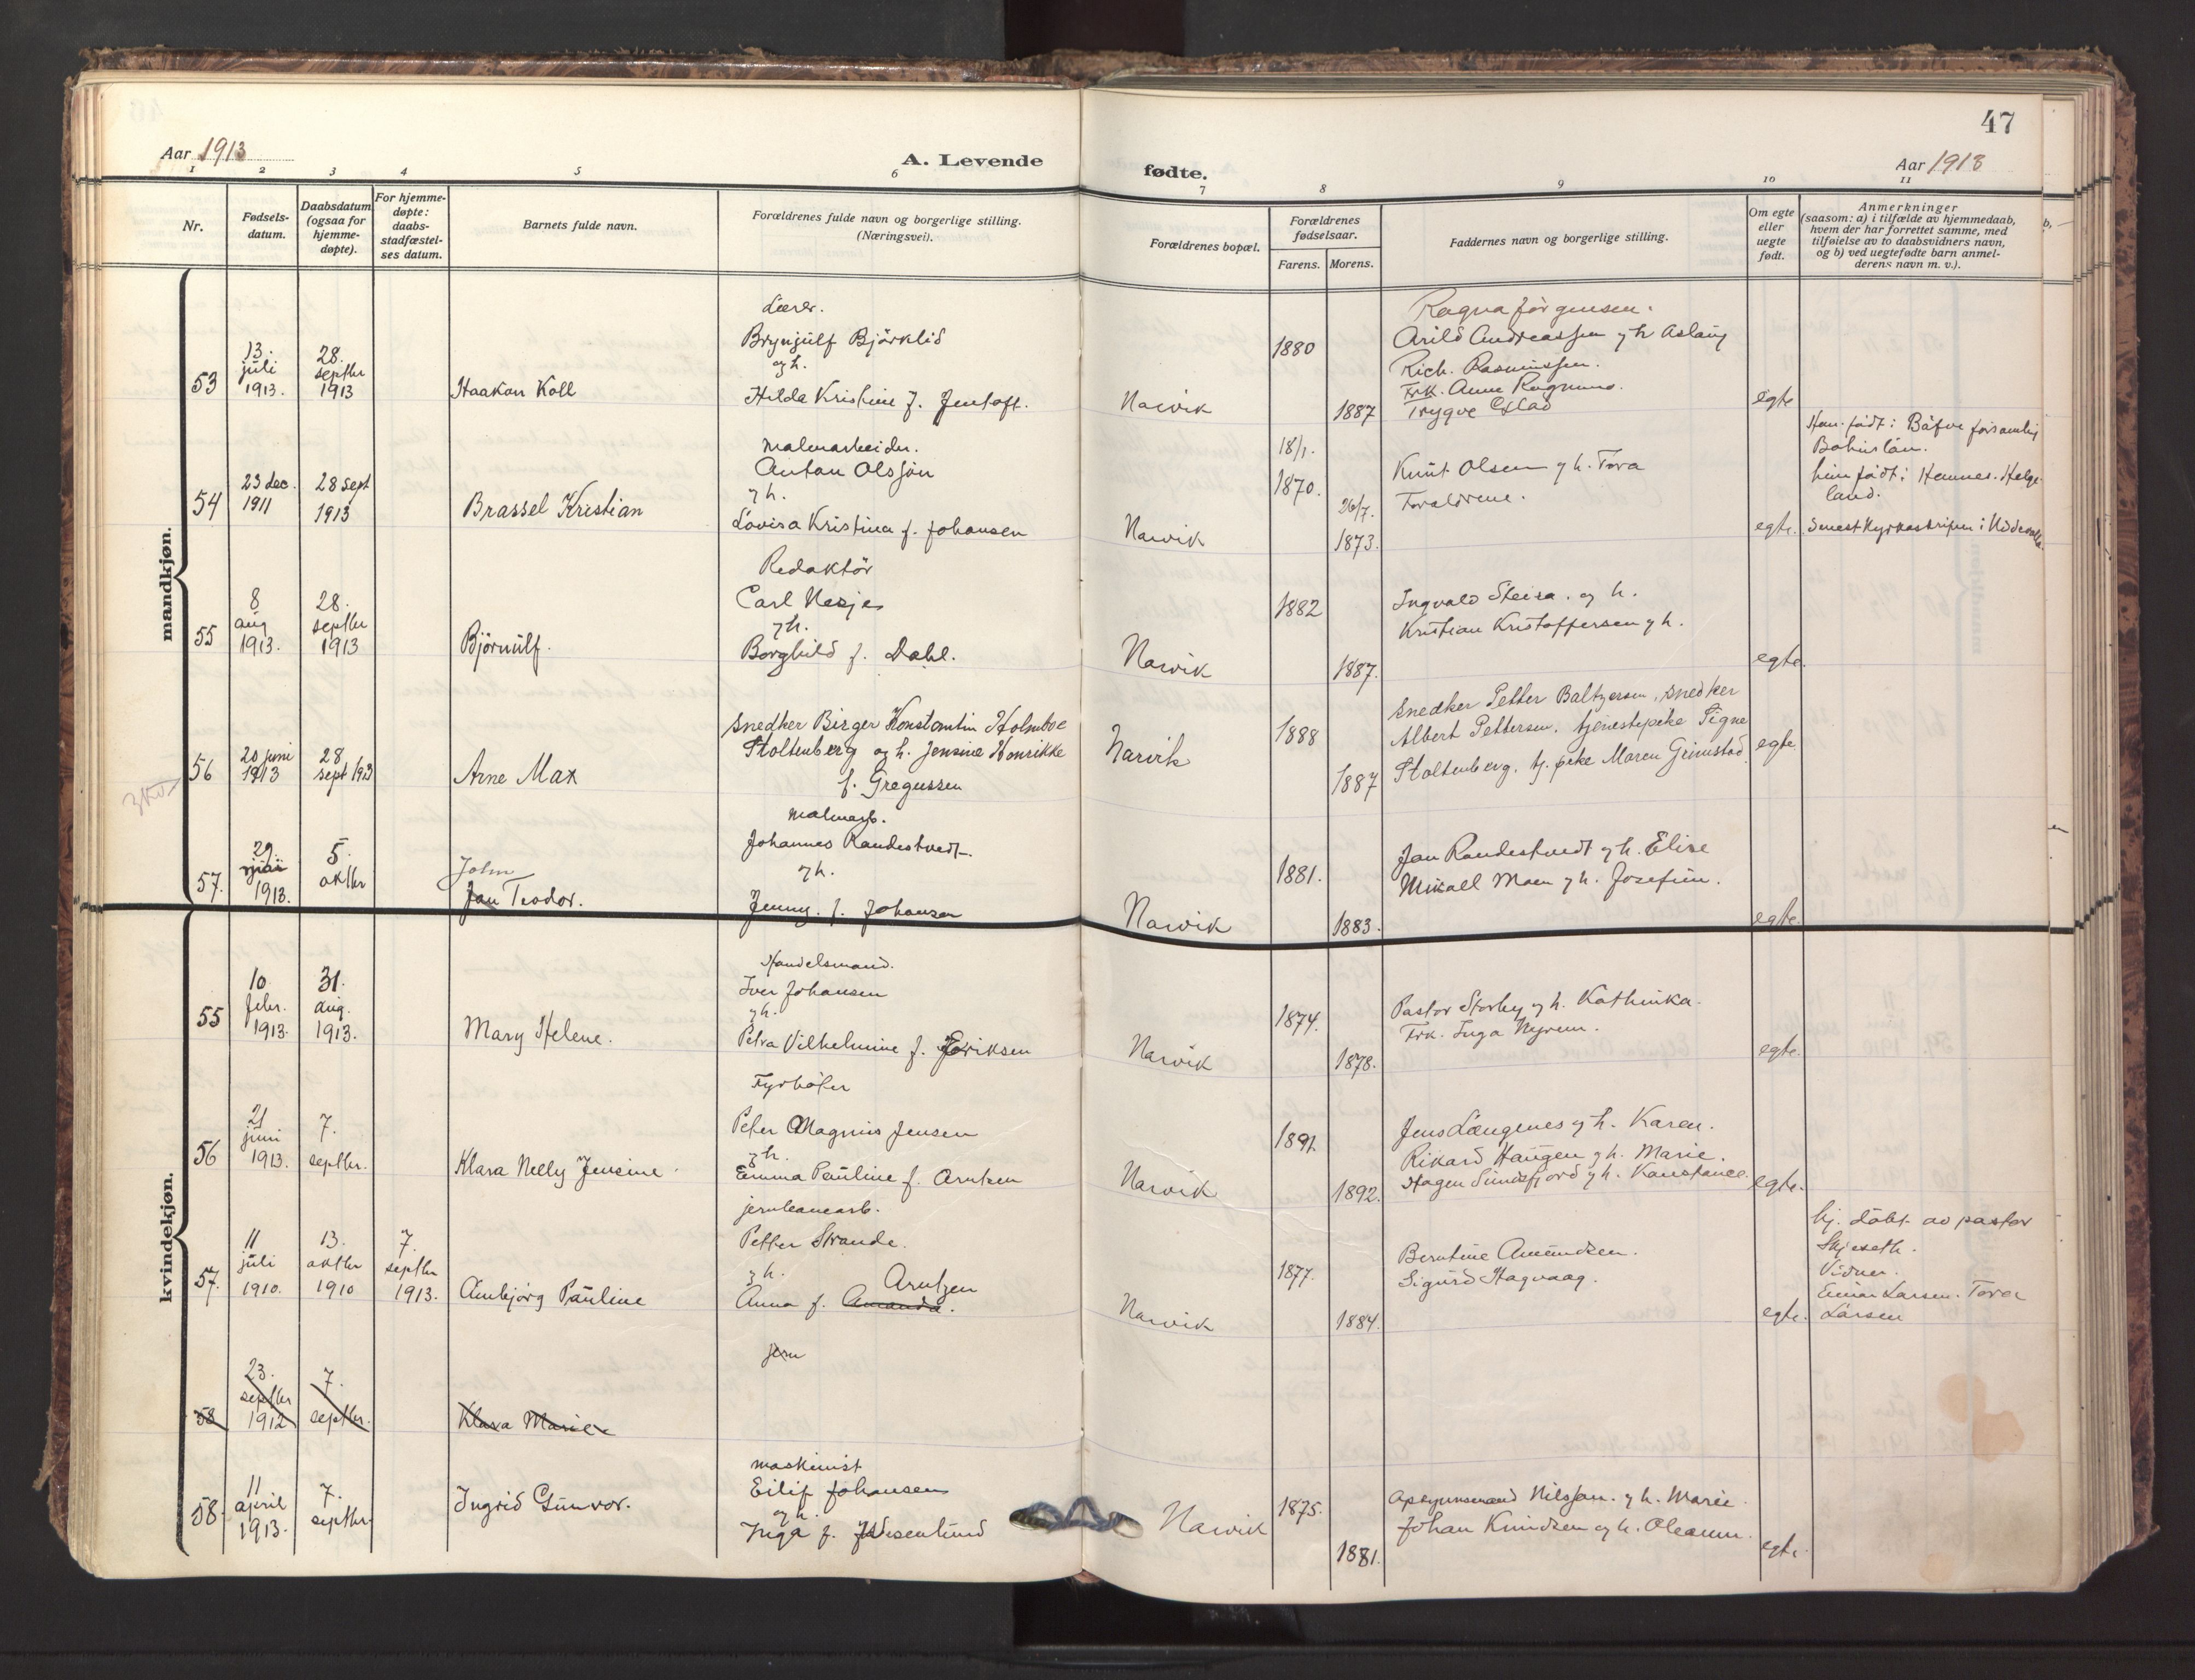 47
Aar 1913
A. Levende
fødte.
Aar 1913
1 2 3 4 5 6 7 8 9 10 11
Nr.
Fødsels-
datum.
Daabsdatum
(ogsaa for
hjemme-
døpte).
For hjemme-
døpte:
daabs-
stadfæstel-
ses datum.
Barnets fulde navn.
Forældrenes fulde navn og borgerlige stilling.
(Næringsvei).
Forældrenes bopæl.
Forældrenes
fødselsaar.
Farens. Morens.
Faddernes navn og borgerlige stilling.
Om egte
eller
uegte
født.
Anmerkninger
(saasom: a) i tilfælde av hjemmedaab,
hvem der har forrettet samme, med
tilføielse av to daabsvidners navn,
og b) ved uegtefødte barn anmel-
derens navn m. v.).
mandkjøn.
53
13.
juli
1913.
28.
septbr
1913
Haakon Koll
Lærer.
Brynjulf Björklid
og h.
Hilda Kristine f. Jentoft.
Narvik
1880
1887
Ragna Jörgensen.
Arild Andreassen og h Aslaug
Rich. Rasmussen.
Frk. Anne Rognmo.
Trygve
egte
54
23 dec.
1911
28 sept
1913
Brassel Kristian
Malmarbeider.
Anton Olsson
og h.
Lovisa Kristina f. Johansen
Narvik
18/1.
1870.
26/7.
1873.
Knut Olsen og h. Tora
Foraldrene.
egte.
Han födt i Bäfve församling
Bohuslän.
hun födt i Hemnes. Helge-
land.
55
8
aug
1913.
28.
septbr
1913
Björnulf.
Redaktör
Carl Nesje
og h.
Borghild f. Dahl.
Narvik
1882
1887.
Ingvald Steira. og h.
Kristian Kristoffersen og h.
egte.
56
20 juni
1913
28
sept 1913
Arne Max
Snedker Birger Konstantin Holmboe
Stoltenberg og h. Jensine Henrikke
f. Gregussen
Narvik
1888
1887
Snedker Petter Baltzersen, snedker
Albert Pettersen, tjenestepike Signe
Stoltenberg, tj. pike Maren Grimstad
egte.
57.
29
1913.
5.
oktbr
John
Jan Teodor.
Malmarb.
Johannes Randestvedt.
og h.
Jenny. f. Johansen
Narvik
1881.
1883.
Jan Randestvedt og h. Elise
Mikall Moen og h. Josefine.
egte.
kvindekjøn.
55
10
febr.
1913.
31.
aug.
1913.
Mary Helene.
Handelsmand.
Iver Johansen
og h.
Petra Vilhelmine f. Eriksen
Narvik
1874.
1878.
Pastor Storby og h. Kathinka.
Frk. Inga Nyrem.
egte.
56
21
juni
1913.
7.
septbr.
Klara Nelly Jensine.
Fyrböter
Peter Magnus Jensen
og h.
Emma Pauline f. Arntzen
Narvik
1891.
1892.
Jens Længenes og h. Karen.
Rikard Haugen og h. Marie.
Hagen Sundsfjord og h. Konstance.
egte.
57.
11
juli
1910.
13.
oktbr
1910
7.
septbr
1913.
Ambjörg Pauline
jernbanearb.
Petter Strande.
og h.
Arntzen
Anna f. Amanda.
Narvik
1877.
1884.
Berntine Amundsen.
Sigurd Hagvaag.
egte.
hj. döbt av pastor
Skjeseth.
Vidner.
Einar Larsen. Tora
Larsen
58
23.
septbr
1912
7.
septbr.
Klara Marie
jern
58.
11
april
1913.
7.
septbr.
Ingrid Gunvor.
maskinist
Eilif Johansen
og h.
Inga f. Wesenlund
Narvik
1875.
1881.
Opsynsmand Nilssen. og h. Marie.
Johan Knudsen og h. Oleanna.
egte.